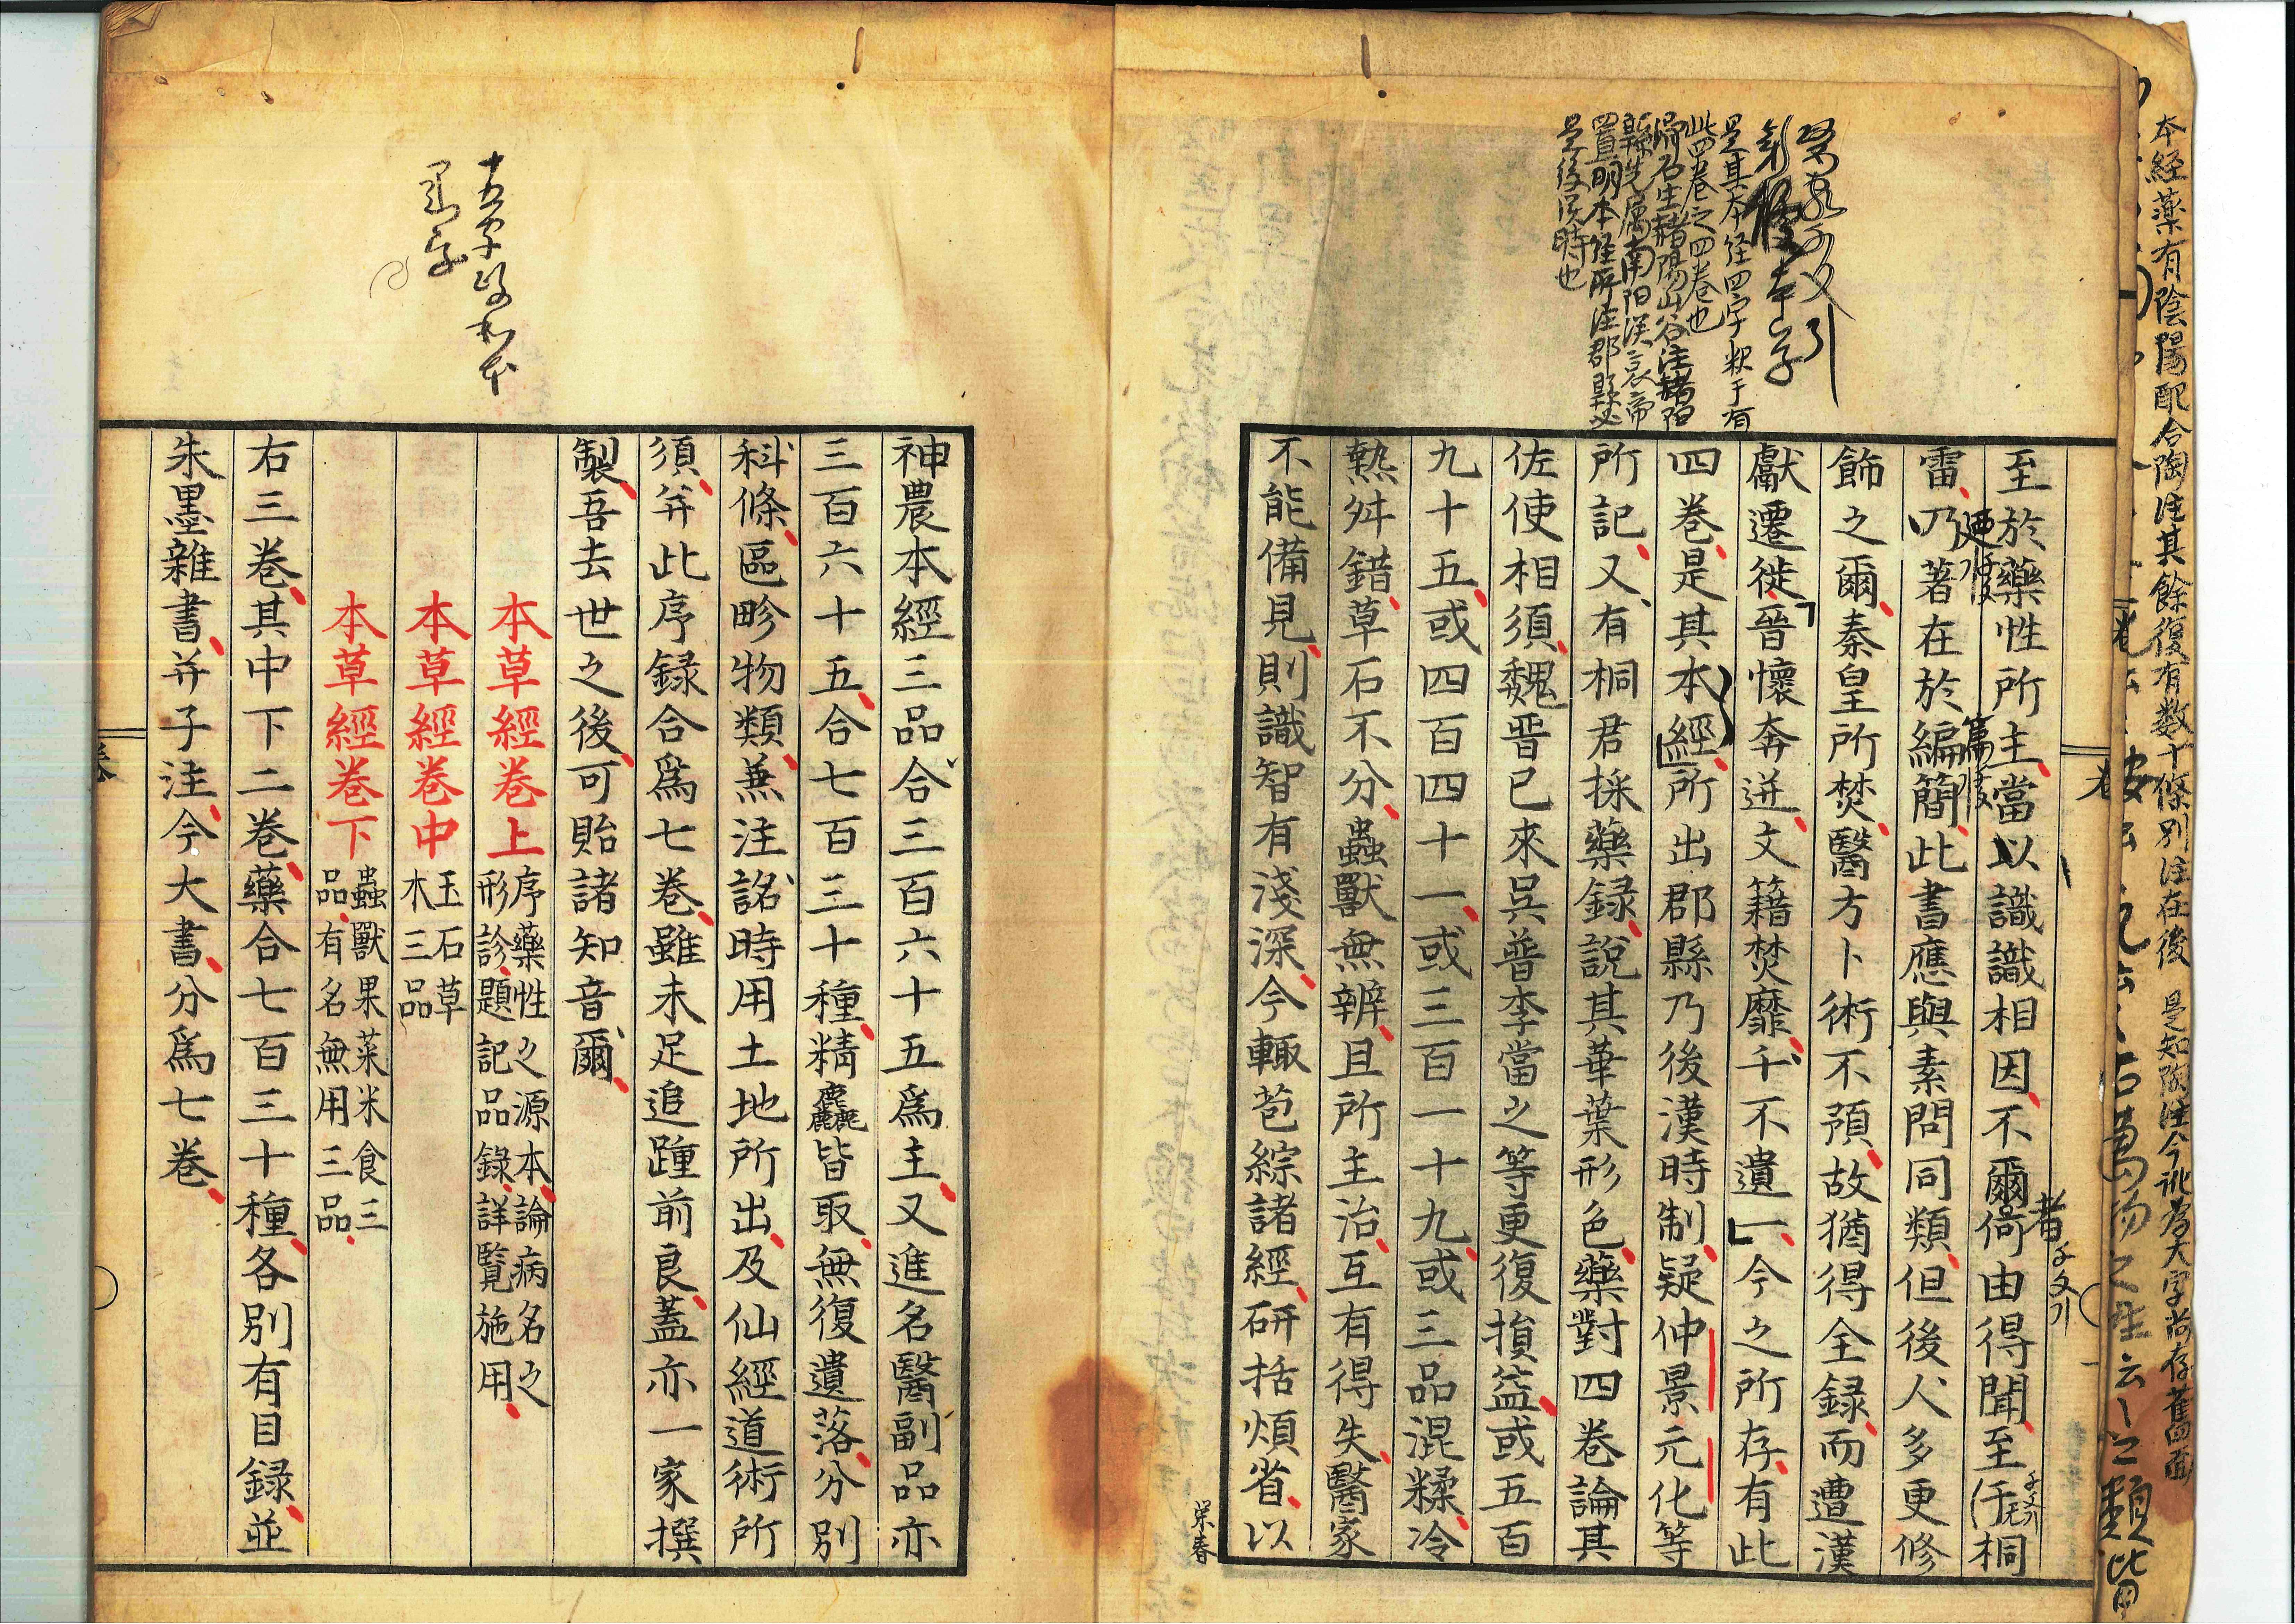 本經藥有陰陽配合陶注其餘復有数十條別注在後 是知陶注今訛為大字尚存舊面
至於藥性所主當以識識相因不爾何由得聞至于桐
雷乃著在於編簡此書應與素問同類但後人多更修
飾之爾秦皇所焚醫方卜術不預故猶得全録而遭漢
獻遷徙晉懷奔迸文籍焚靡千不遺一今之所存有此
四卷是其本經所出郡縣乃後漢時制疑仲景元化等
所記又有桐君採藥録說其華葉形色藥對四卷論其
佐使相須魏晉已來吳普李當之等更復損益或五百
九十五或四百四十一或三百一十九或三品混糅冷
熱舛錯草石不分蟲獸無辨且所主治互有得失醫家
不能備見則識智有淺深今輙苞綜諸經研括煩省以
是其本经四字釈于有
此四卷之四卷也
是後漢時也
神農本經三品合三百六十五爲主又進名醫副品亦
三百六十五合七百三十種精麤皆取無復遺落分別
科條區畛物類兼注詺時用土地所出及仙經道術所
須并此序録合爲七卷雖未足追踵前良蓋亦一家撰
製吾去世之後可貽諸知音爾
本草經卷上 序藥性之源本論病名之
形診題記品錄詳覽施用
本草經卷中 玉石草
木三品
本草經卷下 蟲獸果菜米食三
品有名無用三品
右三卷其中下二卷藥合七百三十種各別有目録並
朱墨雜書并子注今大書分爲七卷